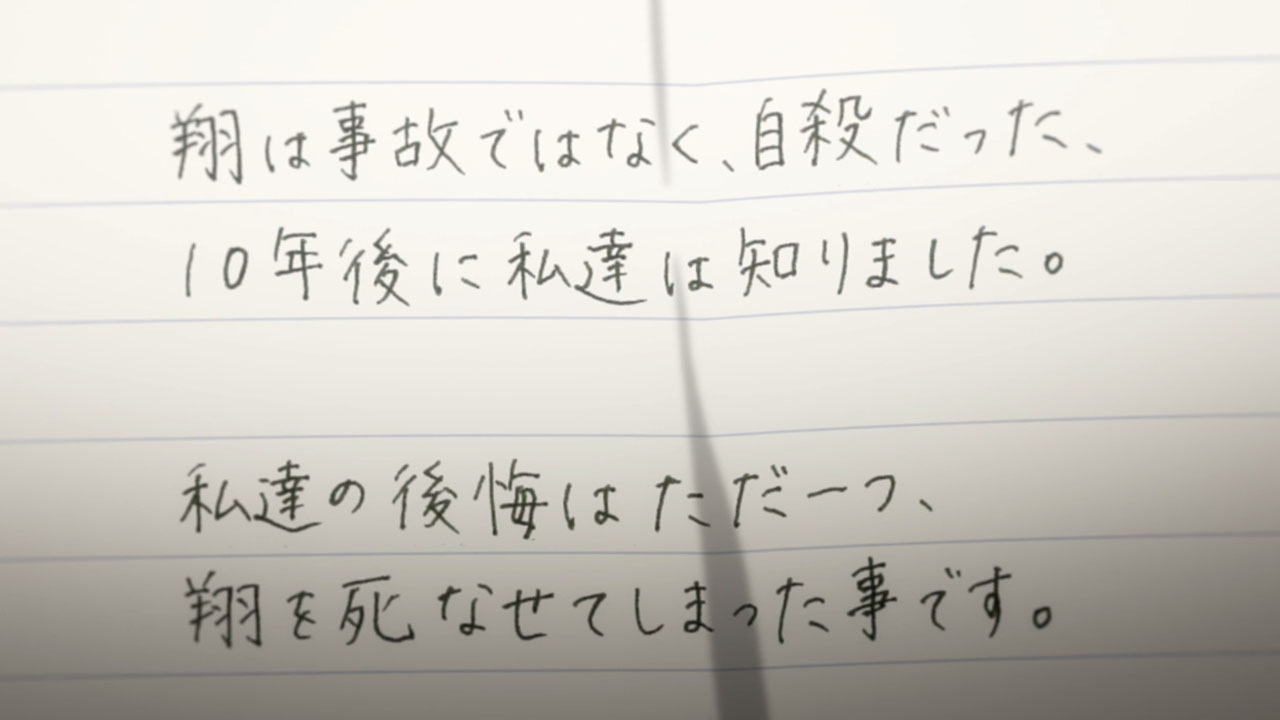 翔は事故ではなく、自殺だった、
10年後に私達は知りました。
私達の後悔はただ一つ、
翔を死なせてしまった事です。